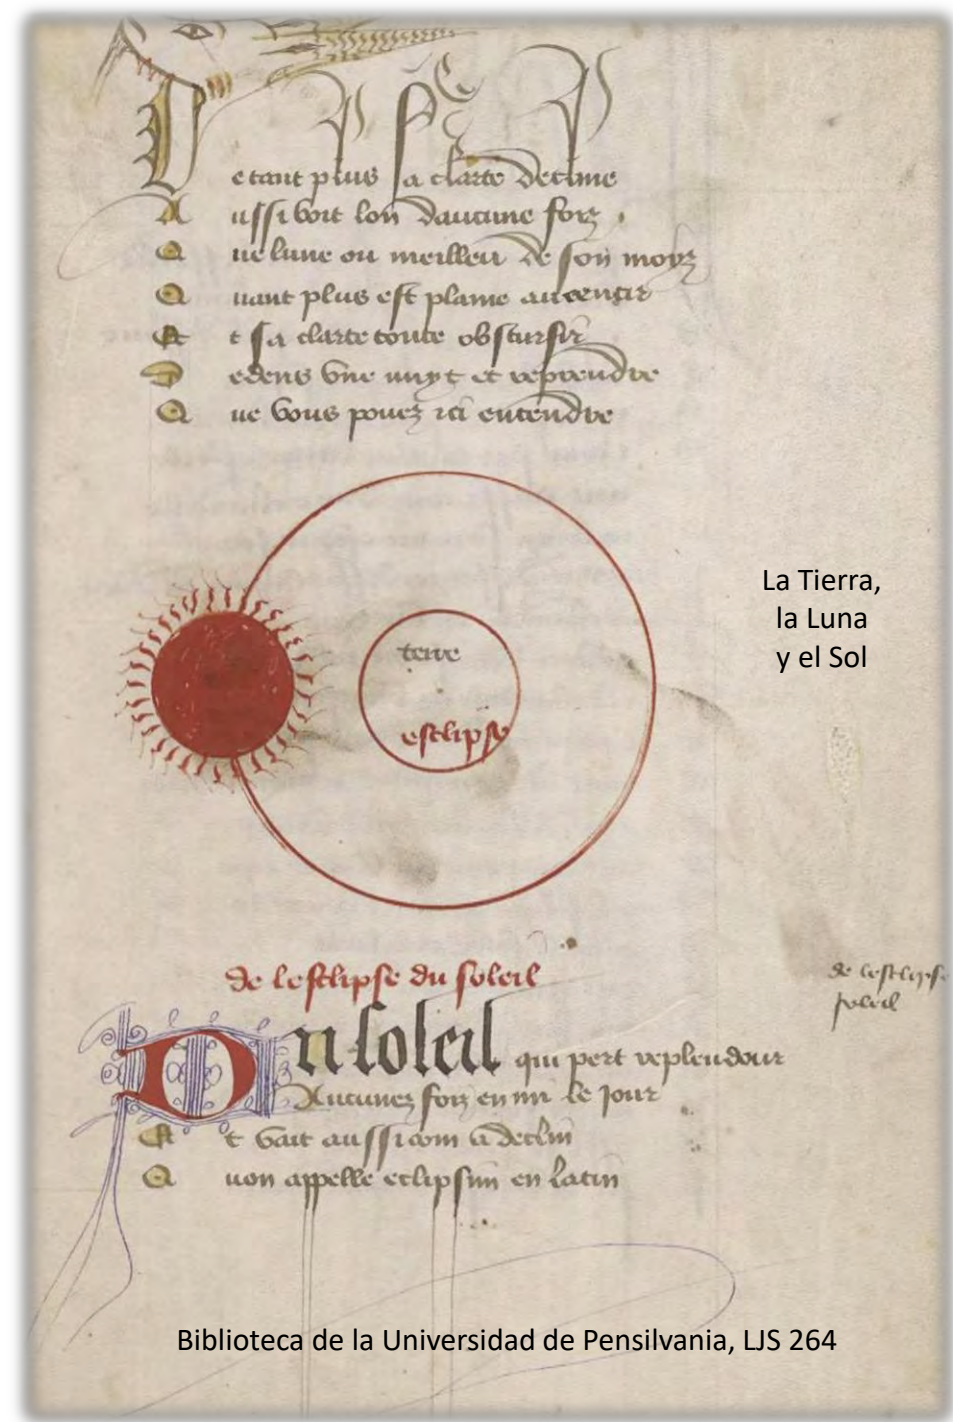 De tant plus sa clarte decline
Aussi voit lon daucune foiz
Que lune ou meilleu de son moys
Quant plus est plaine aveentir
Et sa clarte toute obscursir
Dedens une nuyt et reprendre
Que vous pouez ici entendre
terre
esclipse
La Tierra,
la Luna
y el Sol
de lesclipse du soleil
de lesclipse
soleil
Du soleil qui pert resplendour
Aucunez foiz en mi le jour
Et vait aussi com a declin
Quon appelle eclipsim en latin
Biblioteca de la Universidad de Pensilvania, LJS 264